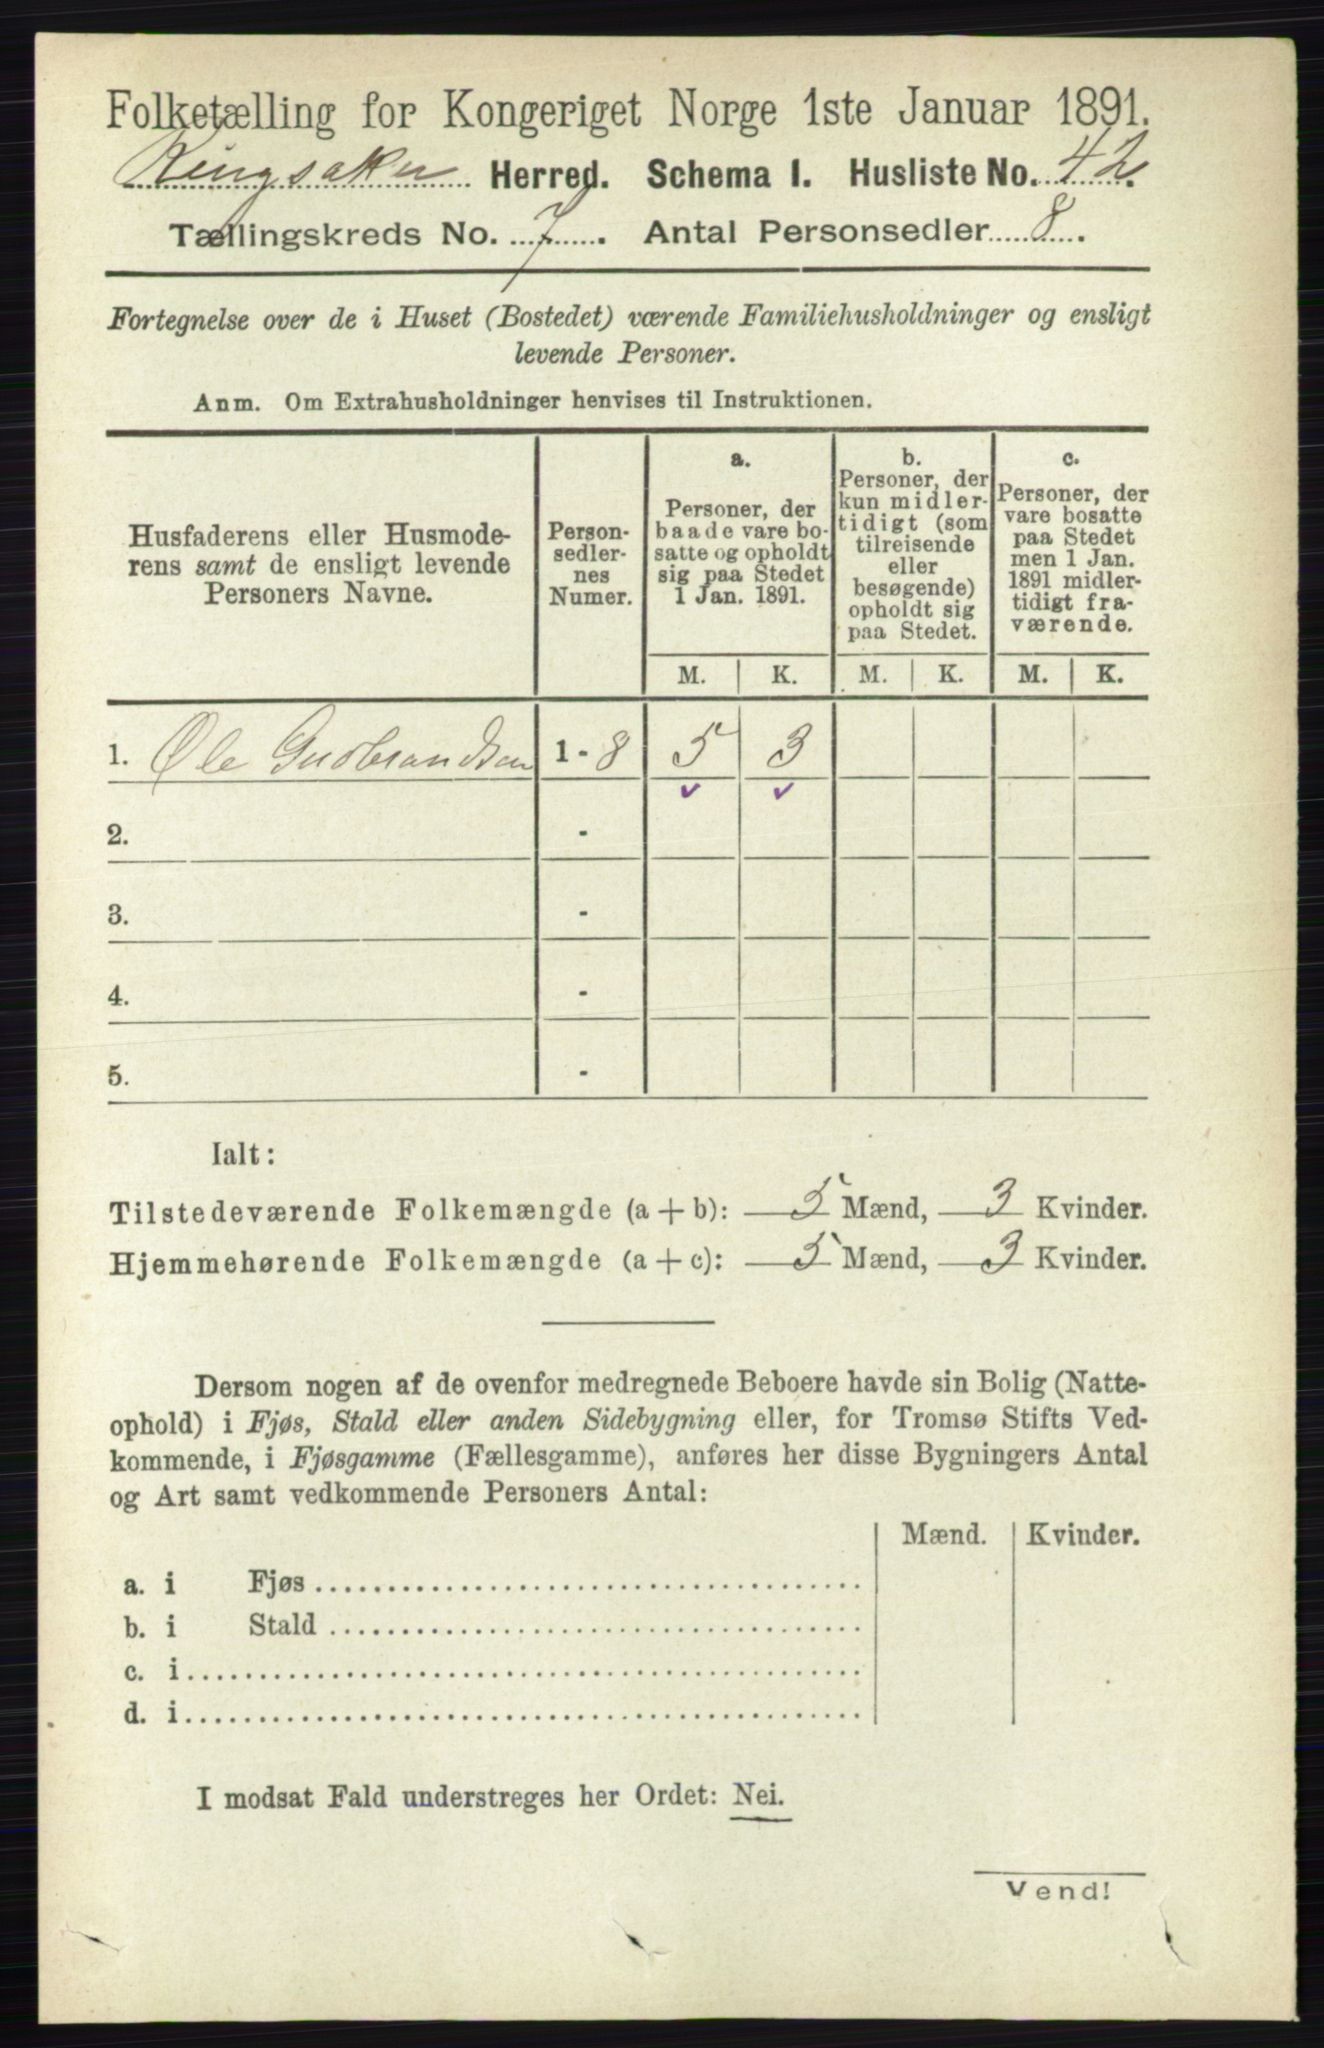 Folketælling for Kongeriget Norge 1ste Januar 1891.
Ringsaker Herred. Schema I. Husliste No. 42.
Tællingskreds No. 7. Antal Personsedler 8.
Fortegnelse over de i Huset (Bostedet) værende Familiehusholdninger og ensligt
levende Personer.
Anm. Om Extrahusholdninger henvises til Instruktionen.
Husfaderens eller Husmode-
rens samt de ensligt levende
Personers Navne.
Person-
sedler-
nes
Numer.
a.
Personer, der
baade vare bo-
satte og opholdt
sig paa Stedet
1 Jan. 1891.
b.
Personer, der
kun midler-
tidigt (som
tilreisende
eller
besøgende)
opholdt sig
paa Stedet.
c.
Personer, der
vare bosatte
paa Stedet
men 1 Jan.
1891 midler-
tidigt fra-
værende.
M. K. M. K. M. K.
1. Ole Gudbrandsen 1-8 5 3
2. -
3. -
4. -
5. -
Ialt:
Tilstedeværende Folkemængde (a+b): 5 Mænd, 3 Kvinder.
Hjemmehørende Folkemængde (a+c): 5 Mænd, 3 Kvinder.
Dersom nogen af de ovenfor medregnede Beboere havde sin Bolig (Natte-
ophold) i Fjøs, Stald eller anden Sidebygning eller, for Tromsø Stifts Ved-
kommende, i Fjøsgamme (Fællesgamme), anføres her disse Bygningers Antal
og Art samt vedkommende Personers Antal:
Mænd. Kvinder.
a. i Fjøs
b. i Stald
c. i
d. i
I modsat Fald understreges her Ordet: Nei.
Vend!